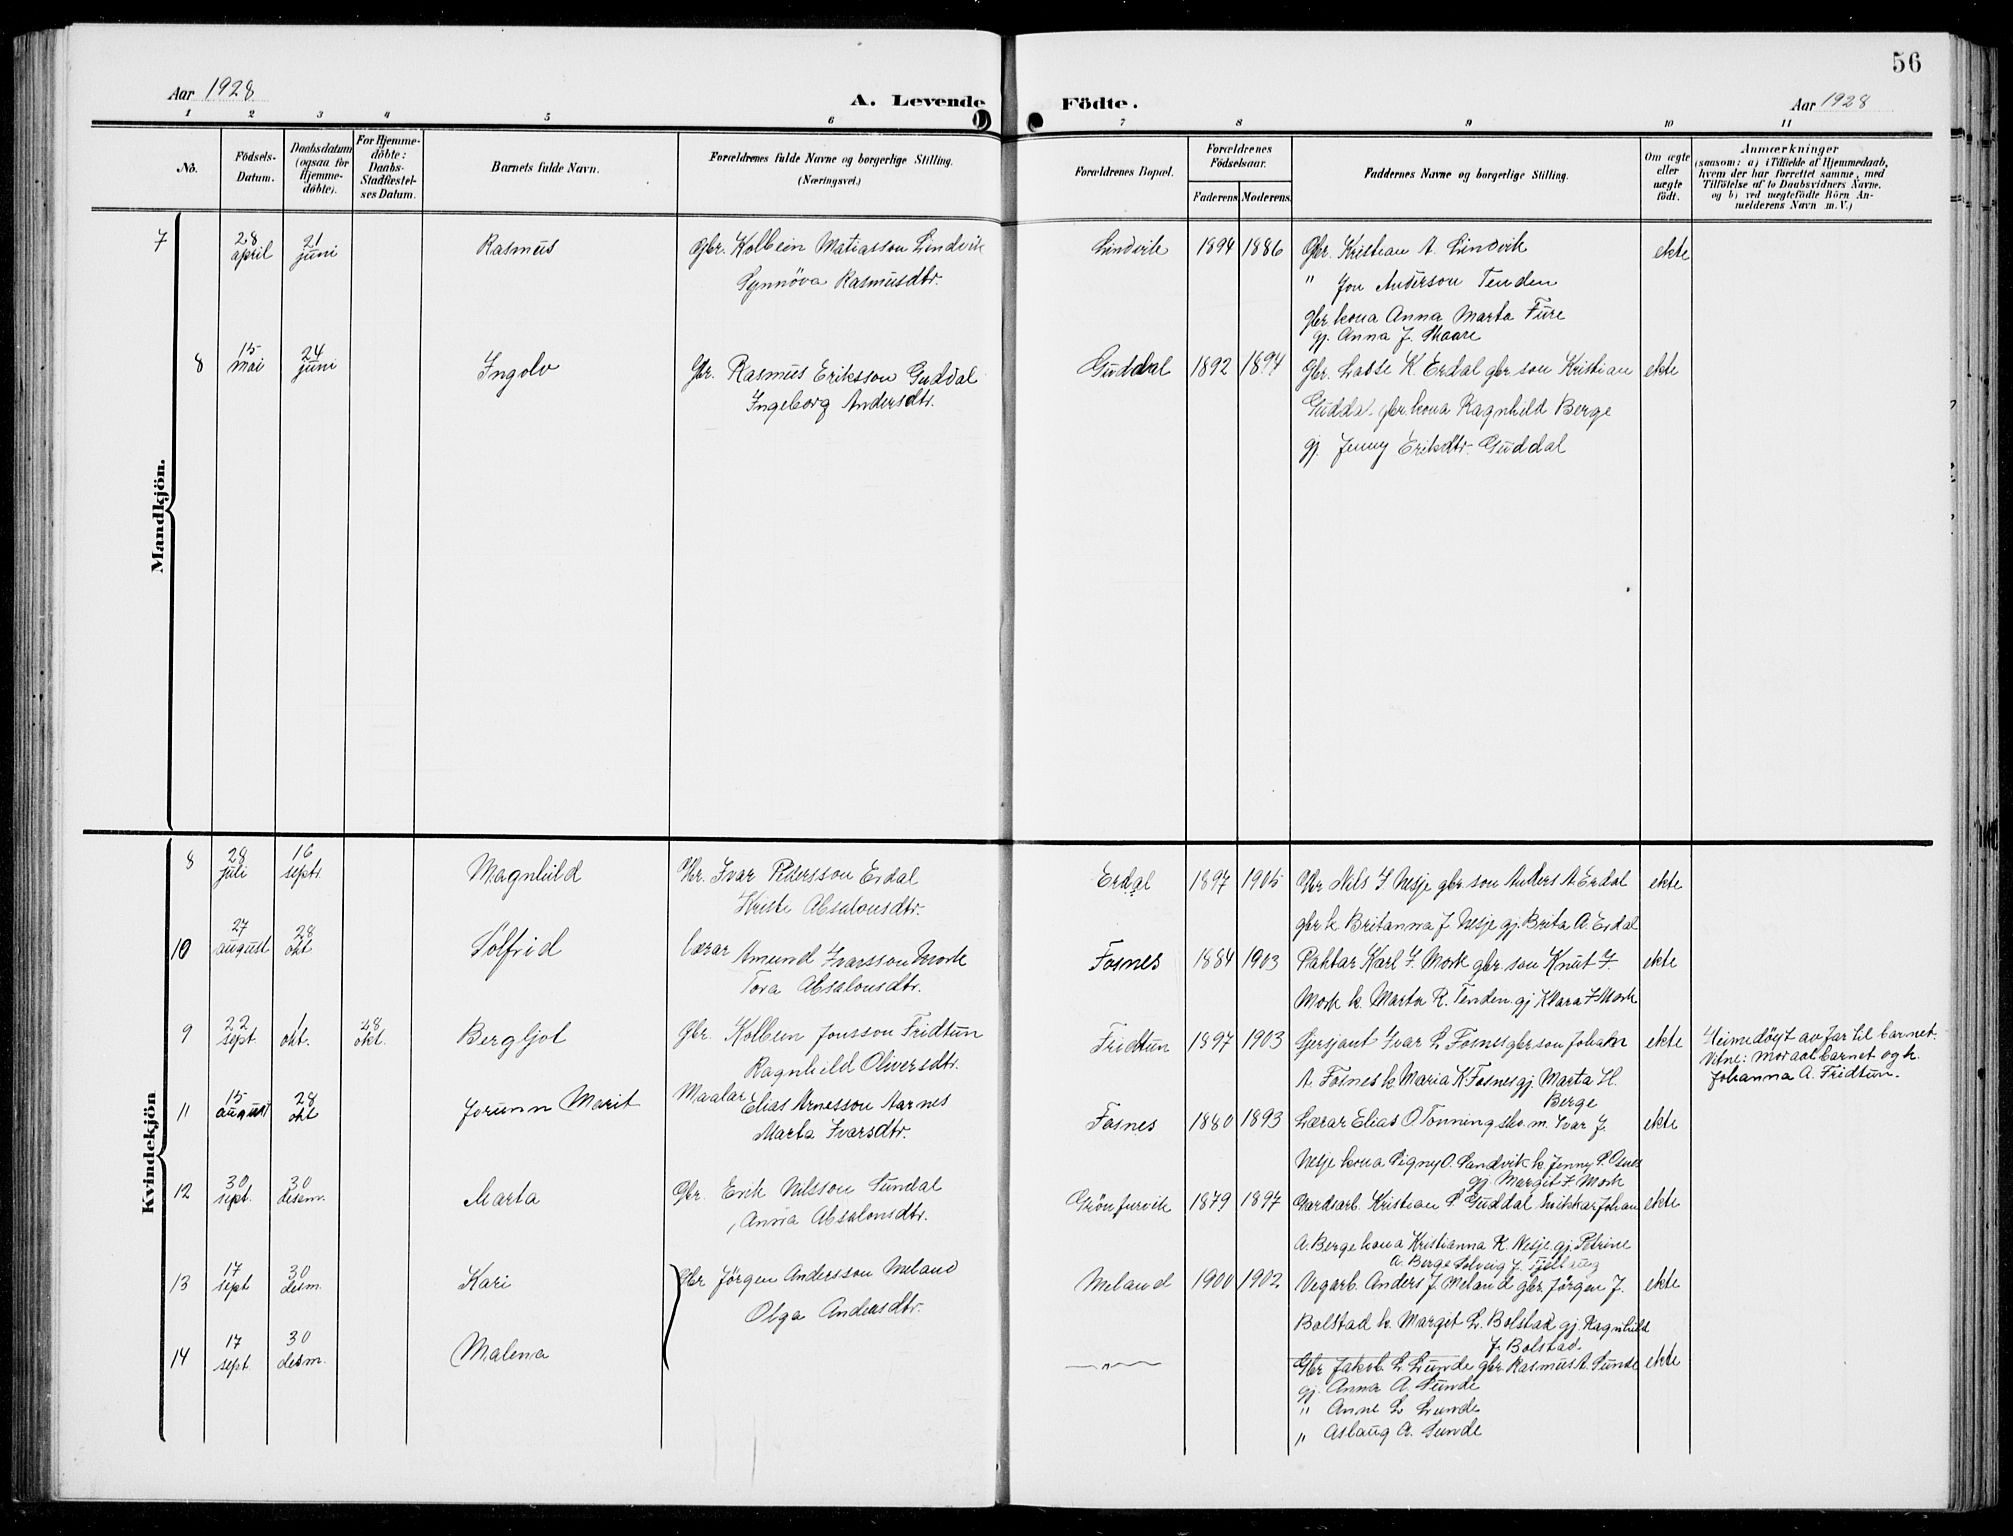 56
Aar 1928
A. Levende
Födte.
Aar 1928
1 2 3 4 5 6 7 8 9 10 11
No.
Födsels-Datum.
Daabsdatum (ogsaa for Hjemme-döbte).
For Hjemme-döbte: Daabs-Stadfæstel-ses Datum.
Barnets fulde Navn.
Forældrenes fulde Navne og borgerlige Stilling. (Næringsvei.)
Forældrenes Bopæl.
Forældrenes Födselsaar.
Faderens Moderens
Faddernes Navne og borgerlige Stilling.
Om ægte eller uægte födt.
Anmærkninger
(saasom: a) i Tilfælde af Hjemmedaab,
hvem der har forrettet samme, med
Tilföielse af to Daabsvidners Navne.
og b) ved uægtefödte Börn An-
melderens Navn m. V.)
Mandkjön.
7 28 april 21 juni Rasmus Gbr. Kolbein Matiasson Lindvik Lindvik 1894 1886 Gbr. Kristian A. Lindvik ekte
Synnöva Rasmusdtr. " Jon Anderson Tenden
gbr kona Anna Marta Fure
gj. Anna J. Skaare
8 15 mai 24 juni Ingolv Gbr. Rasmus Eriksson Guddal Guddal 1892 1894 Gbr. Lasse K. Erdal gbr son Kristian ekte
Ingeborg Andersdtr. Guddal gbr kona Ragnhild Berge
gj. Jenny Eriksdtr. Guddal
Kvindekjön
8 28 juli 16 septr. Magnhild Gbr. Ivar Pedersson Erdal Erdal 1897 1905 Gbr Nils J Nesje gbr son Anders A. Erdal ekte
Kristi Absalonsdtr. gbr k. Britanna J. Nesje gj. Brita A. Erdal
10 27 august 28 okt Solfrid Lærar Amund Ivarsson Mork Fosnes 1884 1903 Karl I. Mork gbr. son Knut I. ekte
Tora Absalonsdtr. Mork k. Marta R. Tenden gj Klara I Mork
9 22 sept 1 okt. 28 okt. Bergljot Gbr. Kolbein Jonsson Fridtun Fridtun 1897 1903 Sersjant Ivar L Fosnes gbr son Johan ekte Heimedöypt av far til barnet.
Ragnhild Oliversdtr. A. Fosnes k Maria K Fosnes gj. Marta H. Vitne: mor aat barnet og k.
Berge Johanna A. Fridtun.
11 15 august 28 okt Jorunn Marit Maalar Elias Arnesson Aarnes Fosnes 1880 1893 Lærar Elias O Tonning sko.m. Ivar J. ekte
Marta Ivarsdtr. Nesje kona Signy O. Sandvik k. Jenny
gj. Margit I. Mork
12 30 sept. 30 desm. Marta Gbr. Erik Nilsson Sundal Grönfurvik 1879 1897 Gardsarb. Kristian P. Guddal Snikkar Johan ekte
Anna Absalonsdtr. A. Berge kona Kristianna K. Nesje gj. Petrine
A. Berge Solveig J.
13 17 sept 30 desm. Kari Gbr Jörgen Andersson Meland Meland 1900 1902 Vegarb. Anders J. Meland gbr. Jörgen J. ekte
Olga Andersdtr. Bolstad k. Margit L. Bolstad gj. Ragnhild
J. Bolstad.
14 17 sept 30 desm. Malena — " — Gbr Jakob L. Lunde gbr. Rasmus A. Sunde ekte
gj. Anna A. Sunde
" Anne L Lunde
" Aslaug A. Sunde